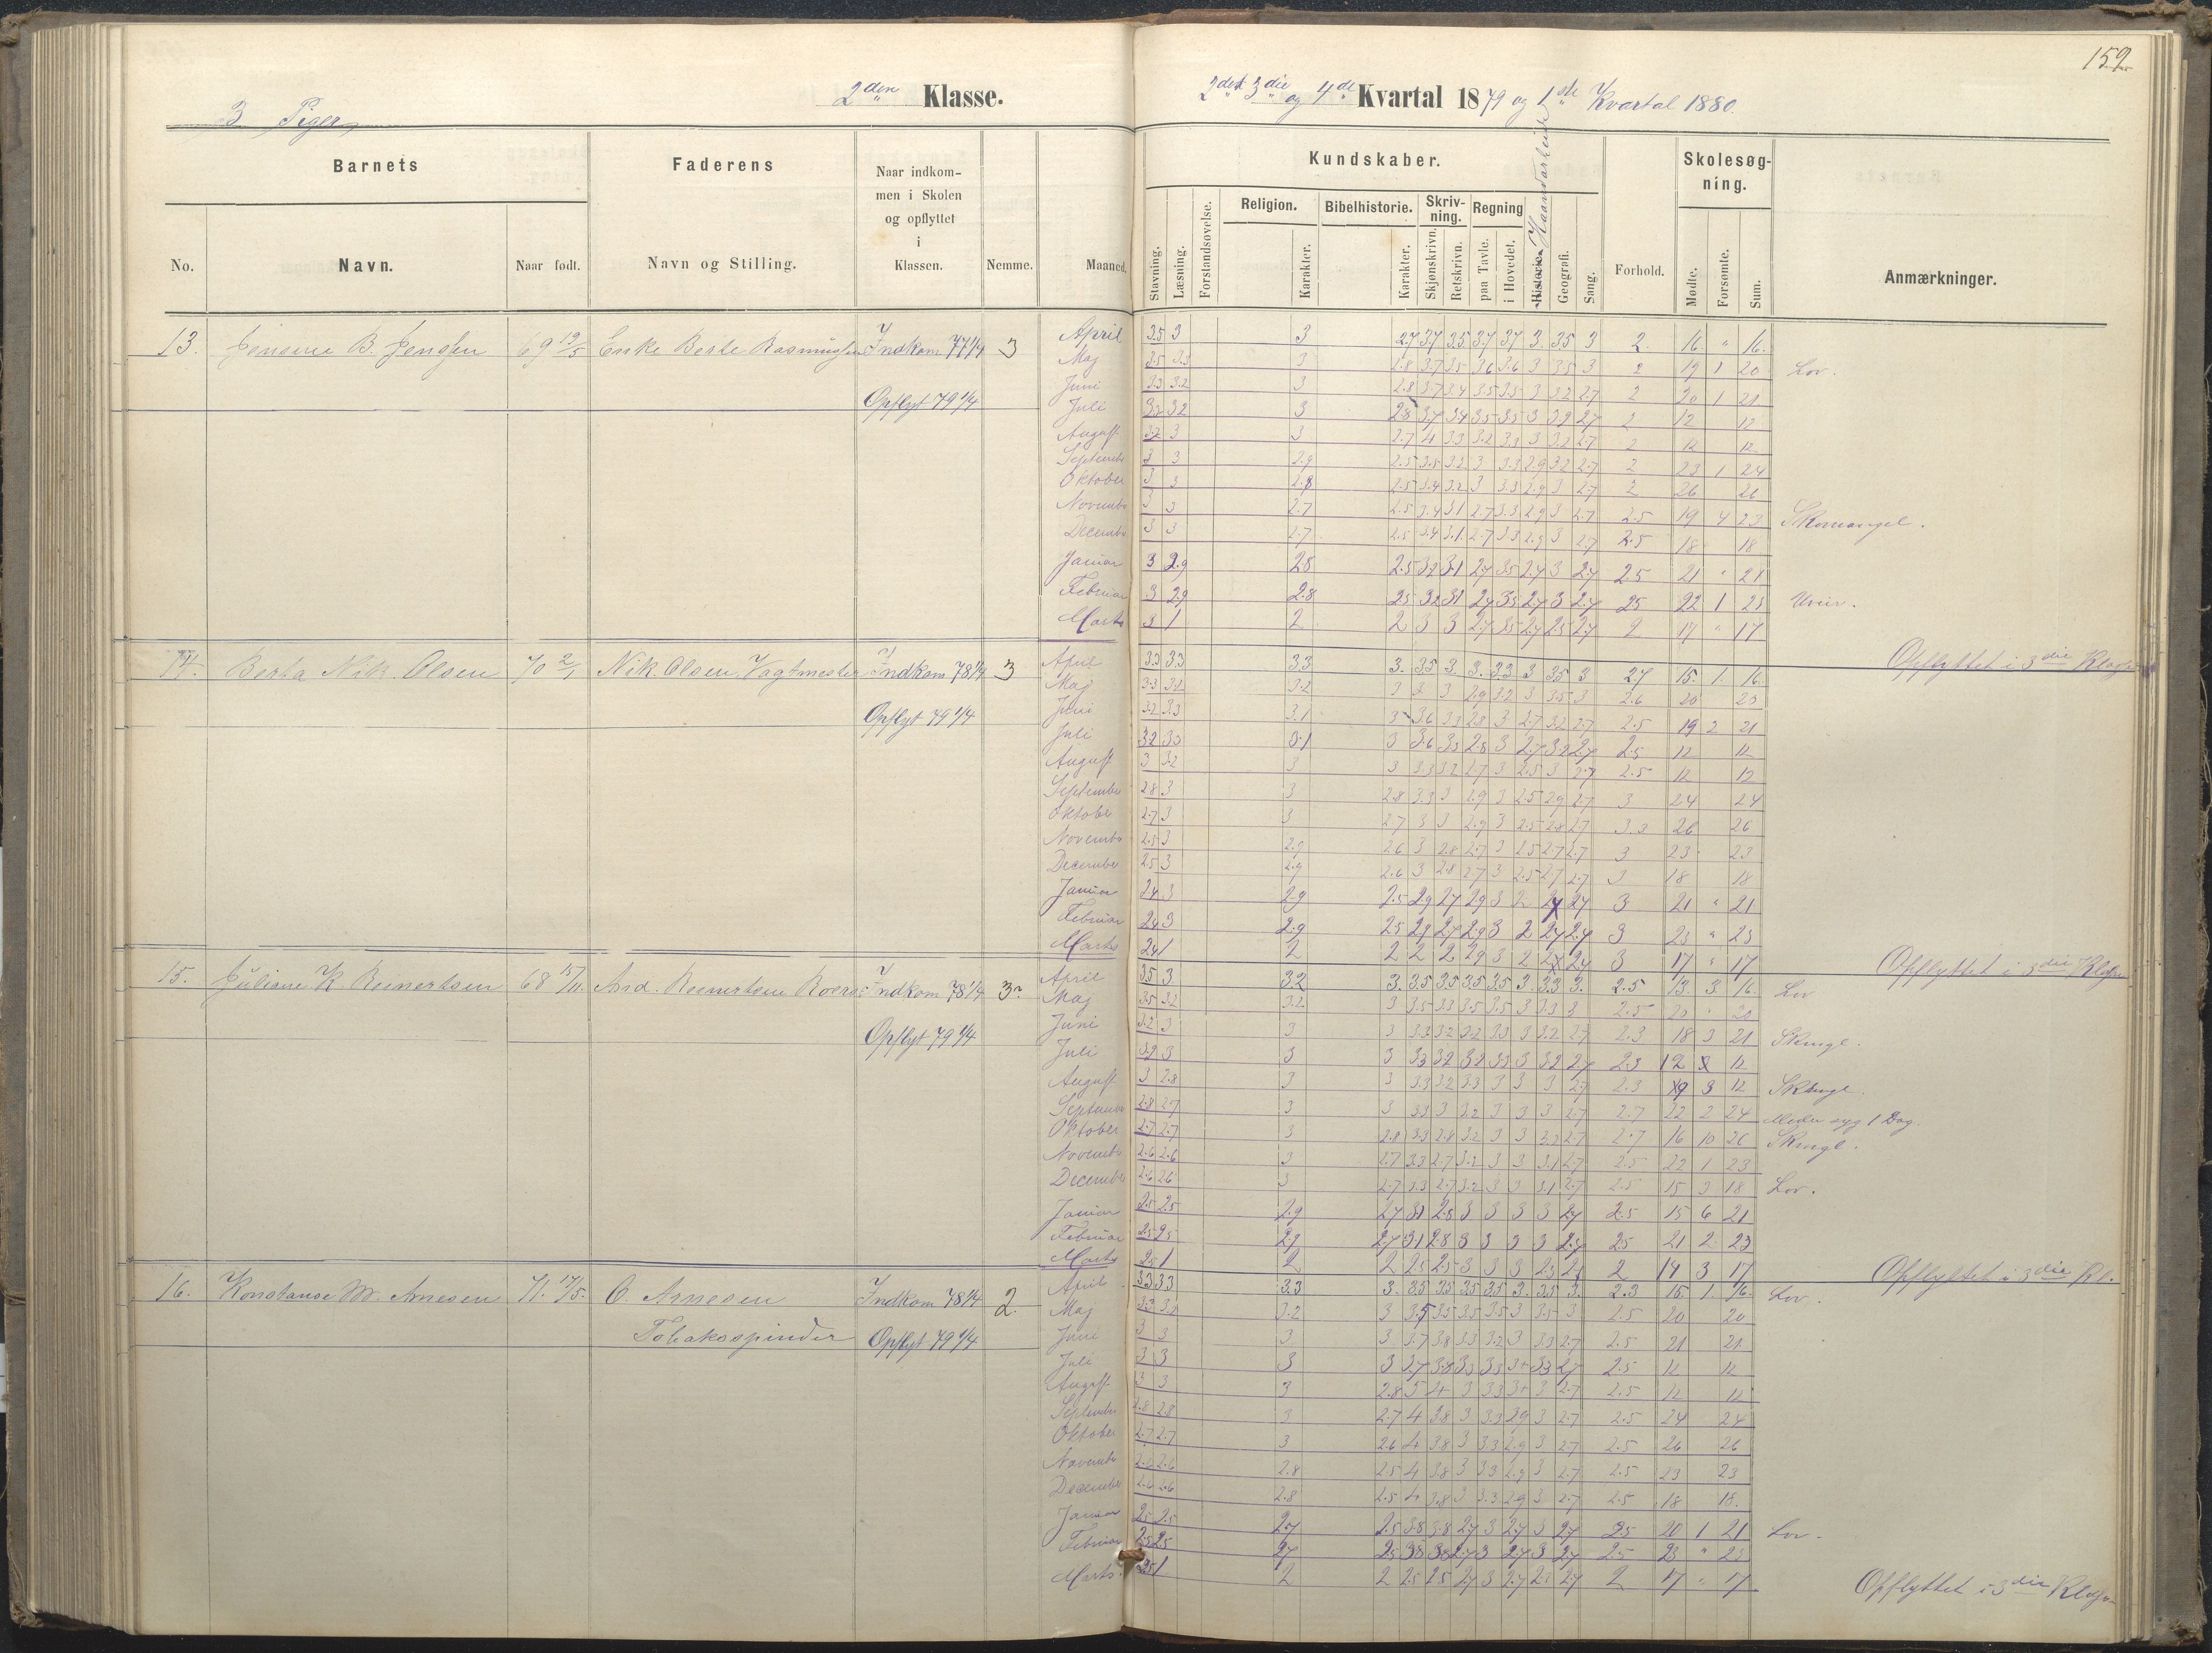 159
2den Klasse.
2det 3die og 4de Kvartal 1879 og 1ste Kvartal 1880.
3 Piger
Barnets
Faderens
Naar indkom-
men i Skolen
og opflyttet
i
Klassen.
No.
Navn.
Naar født.
Navn og Stilling.
Nemme.
Maaned.
Kundskaber.
Stavning.
Læsning.
Forstandsøvelse.
Religion.
Karakter.
Bibelhistorie.
Karakter.
Skriv-
ning.
Skjønskrivn.
Retskrivn.
Regning
paa Tavle.
i Hovedet.
Historie. Haandarbeide
Geografi.
Sang.
Forhold.
Skolesøg-
ning.
Mødte.
Forsømte.
Sum.
Anmærkninger.
13. Jensine B. Jensen 69 19/5 Enke Berte Rasmussen Indkom 77 1/4 3 April 3.5 3 3 2.7 3.7 3.5 3.7 3.7 3. 3.5 3 2. 16 " 16.
Maj 3 2 19 1 20 Lov.
Opflyt 79 1/4
Juni 3.3 3.2 3 2.8 3.7 3.4 3.5 3.5 3 3.2 2.7 2 20 1 21
Juli 3.2 3.2 3 2.8 3.7 3.4 3.5 3.5 3 3.2 2.7 2 12 12
August 3.2 3 3 2.7 4 3.3 3.2 3.3 3 3.2 2.7 2 12 12
September 3 3 2.9 2.5 3.5 3.2 3 3.3 2.9 3.2 2.7 2 23 1 24
Oktober 3 3 2.8 2.5 3.4 3.2 3 3.3 2.9 3 2.7 2 26 26
November 3 3 2.7 2.5 3.4 3.1 2.7 3.3 2.9 3 2.7 2.5 19 4 23 Skomangel.
December 3 3 2.7 2.5 3.4 3.1 2.7 3.3 2.9 3 2.7 2.5 18 18
Januar 3 2.9 2.8 2.5 3.2 3.1 2.7 3.5 2.7 3 2.7 2.5 21 " 21
Februar 3 2.9 2.8 2.5 3.2 3.1 2.7 3.5 2.7 3 2.7 2.5 22 1 23 Uveir.
Marts 3 1 2 2 3 3 2.7 3.5 2.7 2.5 2.7 2 17 " 17
Opflyttet i 3die Klasse
14. Berta Nik. Olsen 70 2/1 Nik. Olsen Vagtmester Indkom 78 1/4 3 April 3.3 3.3 3.3 3. 3.5 3. 3. 3.3 3 3.5 3 2.7 15 1. 16.
Maj 3.3 3.2 3.2 2.6 20 20
Opflyt 79 1/4
Juni 3.2 3.3 3.1 3 3.6 3.3 2.8 3 2.7 3.2 2.7 2.5 19 2 21
Juli 3.2 3.1 3 3.6 3.3 2.8 3 2.7 3.2 2.7 2.5 12 12
August 3 3.2 3 3 3.3 3.2 2.7 3 2.5 3 2.7 2.5 12 12
September 2.8 3 3 2.8 3.3 3 2.9 3 2.5 2.9 2.7 3 24 24
Oktober 2.7 3 3 2.7 3 3 2.9 3 2.5 2.8 2.7 26 26
November 2.5 3 2.9 2.6 3 2.8 2.7 3 2.5 2.7 2.7 3 23 23
December 2.5 3 2.9 2.6 3 2.8 2.7 3 2.5 2.7 2.7 3 18 18
Januar 2.4 3 2.9 2.5 2.9 2.7 2.9 3 2 2.7 2.7 3 21 " 21
Februar 2.4 3 2.9 2.5 2.9 2.7 2.9 3 2 2.7 2.7 3 23 " 23
Marts 2.4 1 2 2 2 2 2.9 3 2 2.7 3 17 " 17
Opflyttet i 3die Klasse
15. Juliane K. Reinertsen 68 15/11. And. Reinertsen Indkom 78 1/4 3. April 3.5 3 3.2 3. 3.5 3.5 3.5 3.5 3. 3.3 3. 2.5 13. 3. 16. Lov
Maj 3.5 3.2 3.2 3 3.5 3.3 3.5 3.5 3 3.3 3 2.5 20 20
Opflyt 79 1/4
Juni 3.2 3 3 3 3.3 3.2 3.2 3.3 3 3.2 2.7 2.3 18 3 21
Juli 3.2 3 3 3 3.3 3.2 3.2 3.3 3 3.2 2.7 2.3 12 12
August 3 2.8 3 3 3.3 3.2 3.3 3 3 3 2.7 2.3 9 3 12
September 2.8 2.7 3 3 3.3 3 3.2 3 3 3 2.7 2.7 22 2 24 Moder syg 1 Dag.
Oktober 2.7 2.7 3 2.8 3.3 2.8 3.2 3 3 3.2 2.7 2.7 16 10 26
November 2.6 2.6 3 2.7 3.3 2.7 3.2 3 3 3.1 2.7 2.5 22 1 23
December 2.6 2.6 3 2.7 3.3 2.7 3.2 3 3 3.1 2.7 2.5 15 3 18 Lov.
Januar 2.5 2.5 2.9 2.7 3.1 2.8 3 3 3 3 2.7 2.5 15 6 21
Februar 2.5 2.5 2.9 2.7 3.1 2.8 3 3 3 3 2.7 2.5 21 2 23
Marts 2.5 1 2 2 2.5 2.5 3 3 3 2 14 3 17
Opflyttet i 3die Kl.
16. Konstanse M. Arnesen 71. 17/5. O. Arnesen Indkom 78 1/4 2. April 3.3 3.3 3.3 3. 3.5 3.5 3.5 3.5 3. 3.5 3. 2.3 15. 1. 16. Lov.
Tobaksspinder Opflyt 79 1/4
Maj 3.3 3.2 3.2 3 3.5 3.5 3.5 3.5 3 3.5 3 2.5 20 20
Juni 3 3 3 3 3.7 3.8 3.3 3.2 3 3.3 2.7 2.5 21 21
Juli 3 3 3 3 3.7 3.8 3.3 3.3 3+ 3.3 2.7 2.5 12 12
August 3 3 3 2.8 3 3.3 3+ 3 2.7 2.5 12 12
September 2.8 2.8 3 2.7 4 3.8 3 3.3 2.9 3 2.7 2.5 24 24
Oktober 2.7 2.7 3 2.6 4 3.8 3 3.3 2.9 3 2.7 2.5 26 26
November 2.6 2.6 2.8 2.5 4 3.8 3 3.3 2.9 3 2.7 2.5 23 23
December 2.6 2.6 2.8 2.5 4 3.8 3 3.3 2.9 3 2.7 2.5 18 18.
Januar 2.5 2.5 2.7 2.5 3.8 3.8 2.7 3 2.7 3 2.7 2.5 20 1 21 Lov.
Februar 2.5 2.5 2.7 2.5 3.8 3.8 2.7 3 2.7 3 2.7 2.5 23 " 23
Marts 2.5 1 2 2 2.5 2.5 2.7 3 2.7 2.7 2 17 " 17
Opflyttet i 3die Klasse